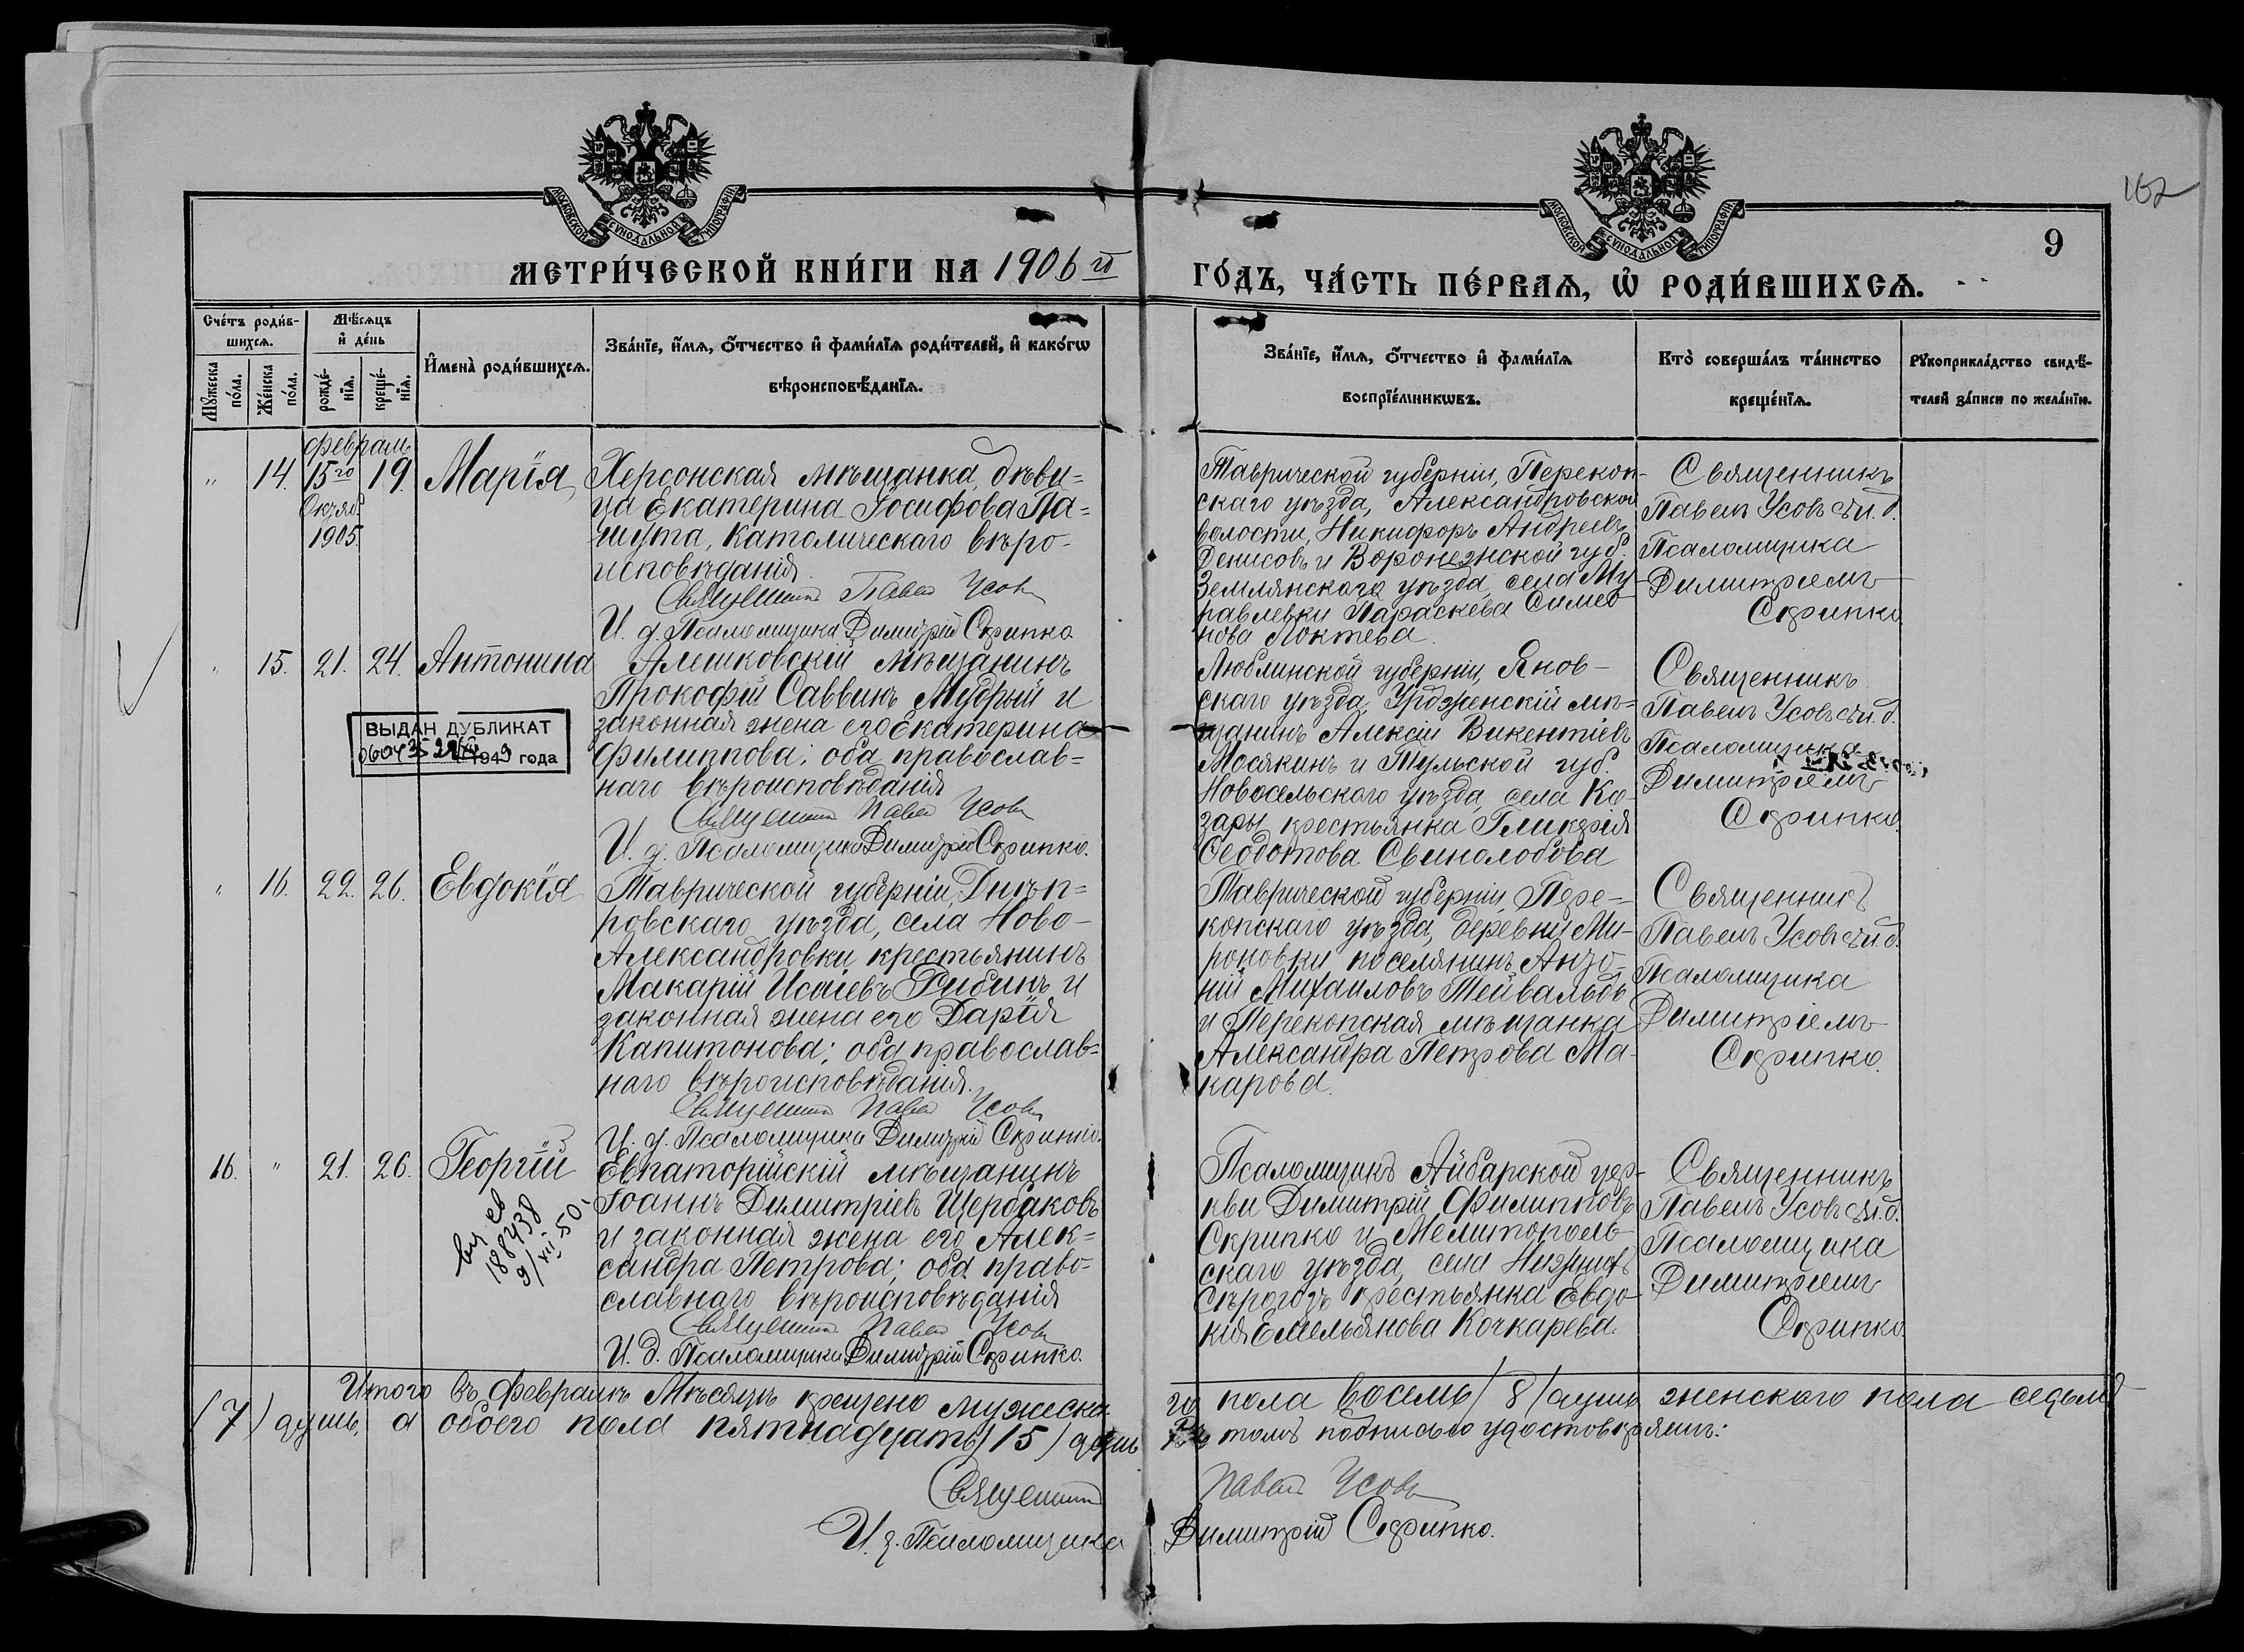 162
МОСКОВСКОЙ СѴНОДАЛЬНОЙ ТИПОГРАФІИ
МОСКОВСКОЙ СѴНОДАЛЬНОЙ ТИПОГРАФІИ
9
МЕТРИ́ЧЕСКОЙ КНИ́ГИ НА 1906 го́
ГО́ДЪ, ЧА́СТЬ ПЕ́РВАѦ, Ѡ҆ РОДИ́ВШИХСѦ.
Сче́тъ роди́в-
шихсѧ.
Мꙋ́жеска
по́ла.
Же́нска
по́ла.
Мѣ́сѧцъ
и҆ де́нь
рожде́-
нїѧ.
креще́-
нїѧ.
И҆мена̀ роди́вшихсѧ.
Зва́нїе, и҆́мѧ, ѻ҆́тчество и҆ фами́лїѧ роди́телей, и҆ како́гѡ
вѣроисповѣ́данїѧ.
Зва́нїе, и҆́мѧ, ѻ҆́тчество и҆ фами́лїѧ
воспрїе́мникѡвъ.
Кто̀ соверша́лъ та́инство
креще́нїѧ.
Рꙋкоприкла́дство свидѣ́-
телей за́писи по жела́нїю.
февраль
" 14. 15го 19. Марія
Октяб.
1905.
Херсонская мѣщанка, дѣви=
ца Екатерина Іосифова Па=
шута, католическаго вѣро-
исповѣданія
Священникъ Павелъ Усовъ
И. д. Псаломщика Димитрій Скрипко.
Таврической губерніи, Перекоп-
скаго уѣзда, Александровской
волости, Никифоръ Андреевъ
Денисовъ и Воронежской губ.
Землянскаго уѣзда, села Му-
равлевки Параскева Симео-
нова Локтева.
Священникъ
Павелъ Усовъ съ и. д.
Псаломщика
Димитріемъ
Скрипко.
" 15. 21. 24. Антонина
ВЫДАН ДУБЛИКАТ
1949 года
Алешковскій мѣщанинъ
Прокофій Саввинъ Мудрый и
законная жена его Екатерина
Филиппова; оба православ=
наго вѣроисповѣданія
Священникъ Павелъ Усовъ
И. д. Псаломщика Димитрій Скрипко.
Люблинской губерніи, Янов-
скаго уѣзда, мѣ=
щанинъ Алексій Викентіевъ
Мосякинъ и Тульской губ.
Новосельскаго уѣзда, села Ко-
зары крестьянка Гликерія
Ѳеодотова Свинолобова
Священникъ
Павелъ Усовъ съ и. д.
Псаломщика
Димитріемъ
Скрипко.
" 16. 22. 26. Евдокія
Таврической губерніи, Днѣп=
ровскаго уѣзда, села Ново-
Александровки крестьянинъ
Макарій Исаіевъ Рибинъ и
законная жена его Дарія
Капитонова; оба православ=
наго вѣроисповѣданія.
Священникъ Павелъ Усовъ
И. д. Псаломщика Димитрій Скрипко.
Таврической губерніи, Пере=
копскаго уѣзда, деревни Ми-
роновки поселянинъ Анто-
ній Михаиловъ Тейвальдъ
и Перекопская мѣщанка
Александра Петрова Ма-
карова.
Священникъ
Павелъ Усовъ съ и. д.
Псаломщика
Димитріемъ
Скрипко.
16. " 21. 26. Георгій
188438
9/XII-50.
Евпаторійскій мѣщанинъ
Іоаннъ Димитріевъ Щербаковъ
и законная жена его Алек=
сандра Петрова; оба право-
славнаго вѣроисповѣданія
Священникъ Павелъ Усовъ
И. д. Псаломщика Димитрій Скрипко.
Псаломщикъ Айбарской цер-
кви Димитрій Филипповъ
Скрипко и Мелитополь-
скаго уѣзда, села Нижнихъ
Сѣрогозъ крестьянка Евдо-
кія Емельянова Кочкарева.
Священникъ
Павелъ Усовъ съ и. д.
Псаломщика
Димитріемъ
Скрипко.
Итого въ февралѣ мѣсяцѣ крещено мужеска-
го пола восемь /8/ душъ женскаго пола седьмъ
/7/ душъ, а обоего пола пятнадцать /15/ душъ
въ томъ подписью удостовѣряемъ:
Священникъ Павелъ Усовъ
И. д. Псаломщика Димитрій Скрипко.